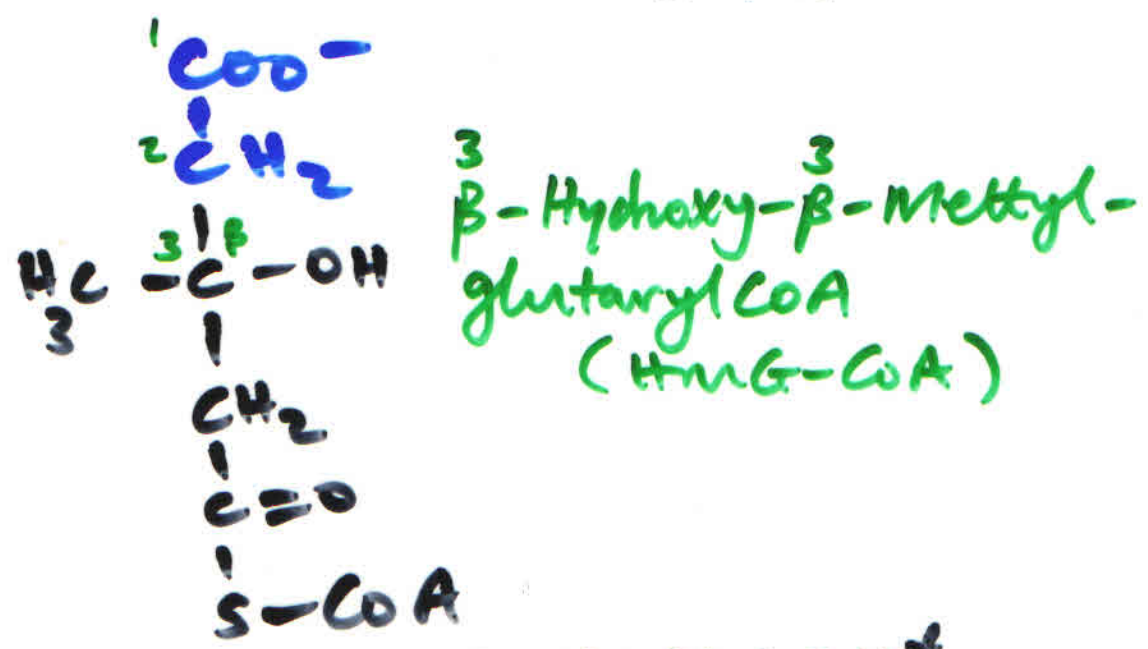 1 COO-
2 CH2
3 β
H3C-C-OH
CH2
C=O
S-CoA
3 3
β-Hydroxy-β-Methyl-
glutarylCoA
(HMG-CoA)
*